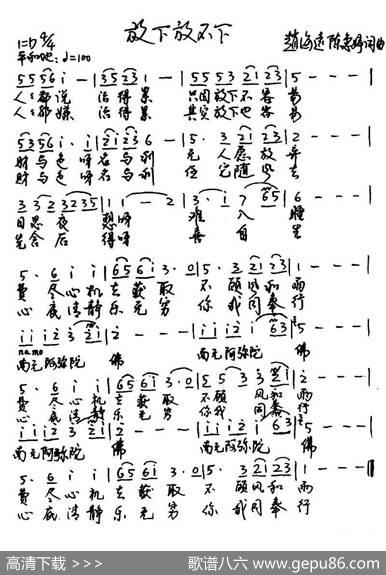 放下放不下
1=D 4/4
平和地 ♩=100
赵海远 陈惠婷词曲
5 5 5 6 i i - | 3 5 2 3 1 - | 5 5 5 3 2 1 2 3 | 5 - - -
人人都说 活得累 只因放下不容易
人人都嫌 活得累 其实放下也容易
财与色呀名与利 无人愿放弃
财与色呀名与利 任它随风去
日思夜想呀 难入睡
先舍后得呀 喜自生
5 · 6 i i | 6 5 6 i 3 · 0 | 5 · 3 2 1 2 3 | 1 - - -
费尽心机去获取 不顾风和雨
心底清静乐无穷 你我同奉行
i i i 2 3 2 i | 2 - - - | i i i 2 i 6 3 | 5 - - -
namo
南无阿弥陀 佛 南无阿弥陀 佛
费尽心机去获取 不顾风和雨
心底清静乐无穷 你我同奉行
南无阿弥陀 佛 南无阿弥陀 佛
5 · 6 i i | 6 5 6 i 3 · 0 | 5 · 3 2 1 2 3 | 1 - - -
费尽心机去获取 不顾风和雨
心底清静乐无穷 你我同奉行
高清下载 >>> 歌谱八六 www.gepu86.com